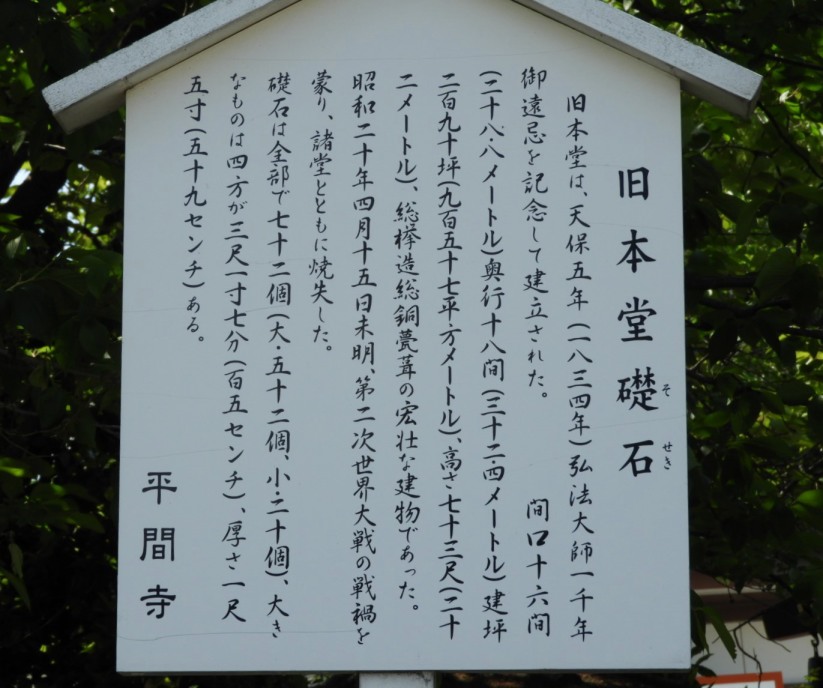 旧本堂礎石
そせき
旧本堂は、天保五年(一八三四年)弘法大師一千年
御遠忌を記念して建立された。 間口十六間
(二十八・八メートル)奥行十八間(三十二・四メートル)建坪
二百九十坪(九百五十七平・方メートル)、高さ七十三尺(二十
二メートル)、総欅造総銅甍葺の宏壮な建物であった。
昭和二十年四月十五日未明、第二次世界大戦の戦禍を
蒙り、諸堂とともに焼失した。
礎石は全部で七十二個(大・五十二個、小・二十個)、大き
なものは四方が三尺一寸七分(百五センチ)、厚さ一尺
五寸(五十九センチ)ある。
平間寺